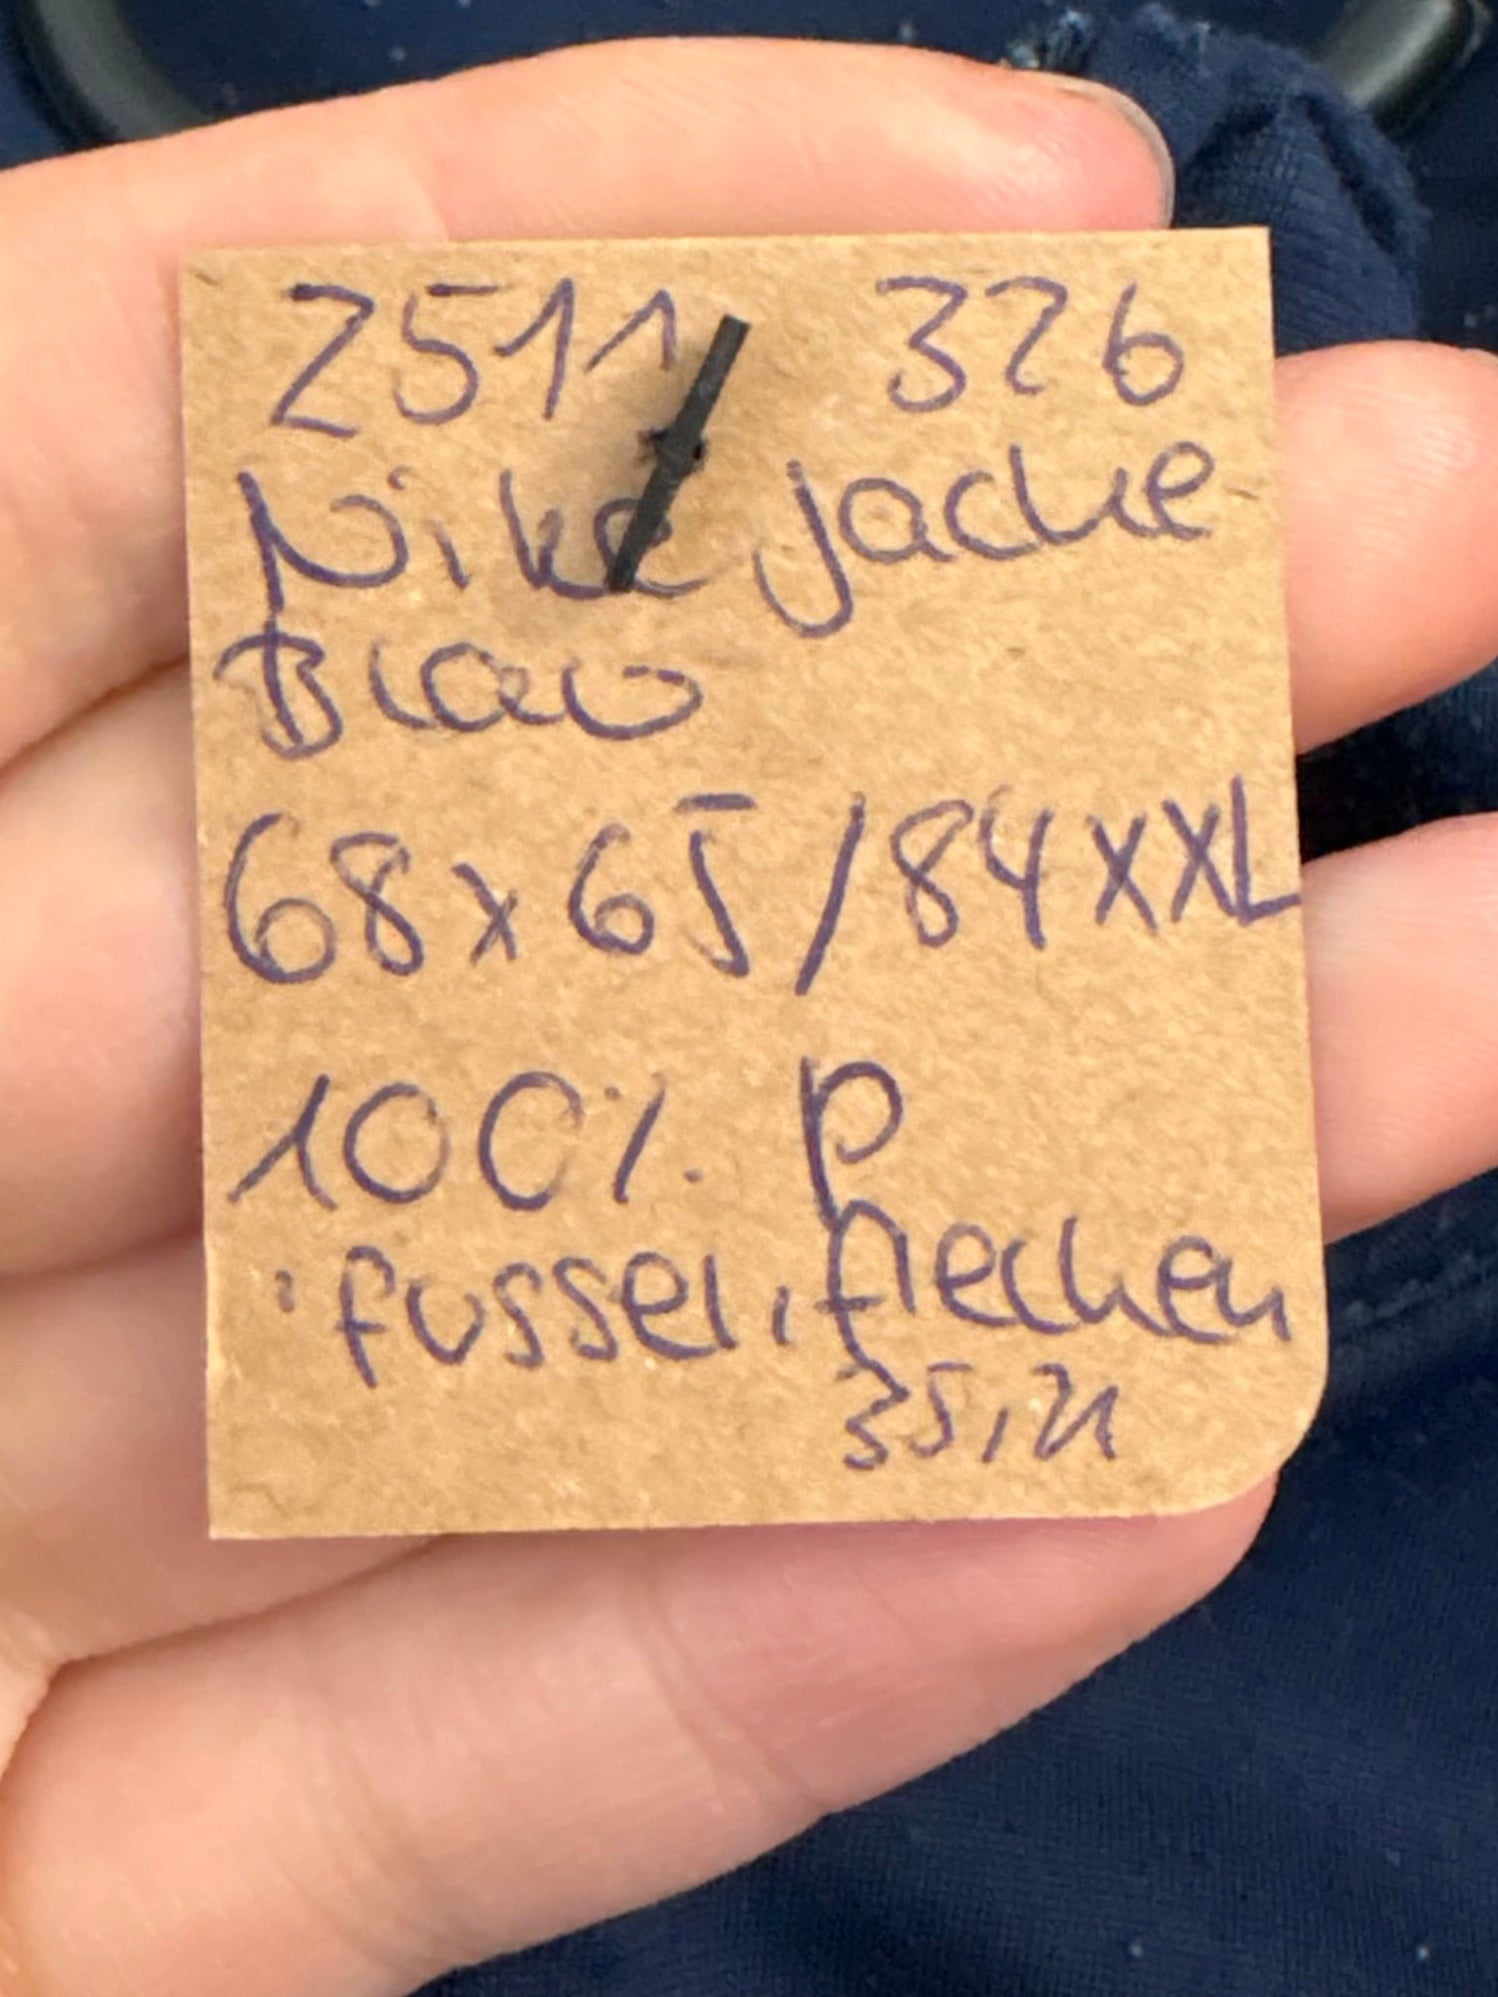 2511 326
Nike jacke
Blau
68x65/84 XXL
100% P
. fussel, flecken
35,21